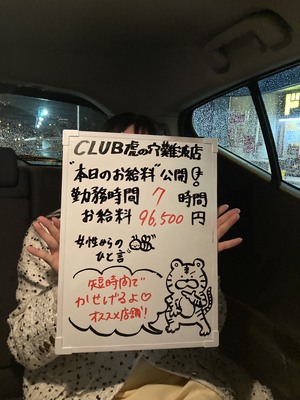 CLUB虎の穴難波店
"本日のお給料"公開!
勤務時間 7 時間
お給料 96,500 円
女性からの
ひと言
短時間で
かせげるよ♡
オススメ店舗!